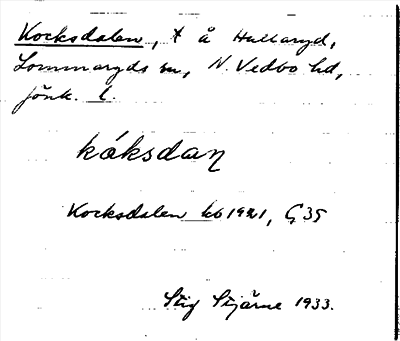 Kocksdalen, t å Hullaryd,
Lommaryds sn, N. Vedbo hd,
Jönk. l.
kåksdaɳ
Kocksdalen kb 1921, G 35
Stig Stjärne 1933.